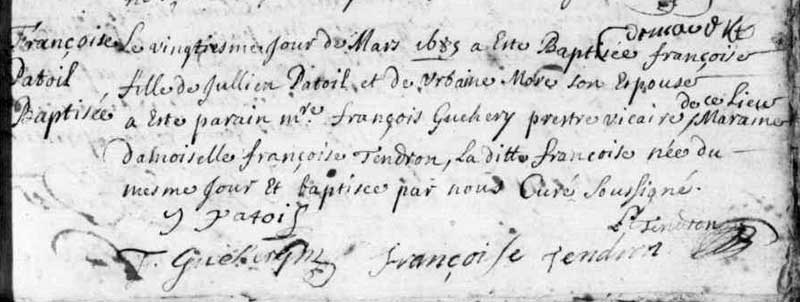 Françoise Le vingtiesme Jour de Mars 1685 a Este Baptisée françoise
Patoil fille de Jullien Patoil et de Urbaine More son Espouse
Baptisée a Este parain mre. françois Guehery prestre vicaire de ce Lieu Maraine
damoiselle françoise Tendron, La ditte françoise née du
mesme Jour Et baptisee par nous Curé Soussigné.
J Patoil
Tendron
Guehery françoise tendron